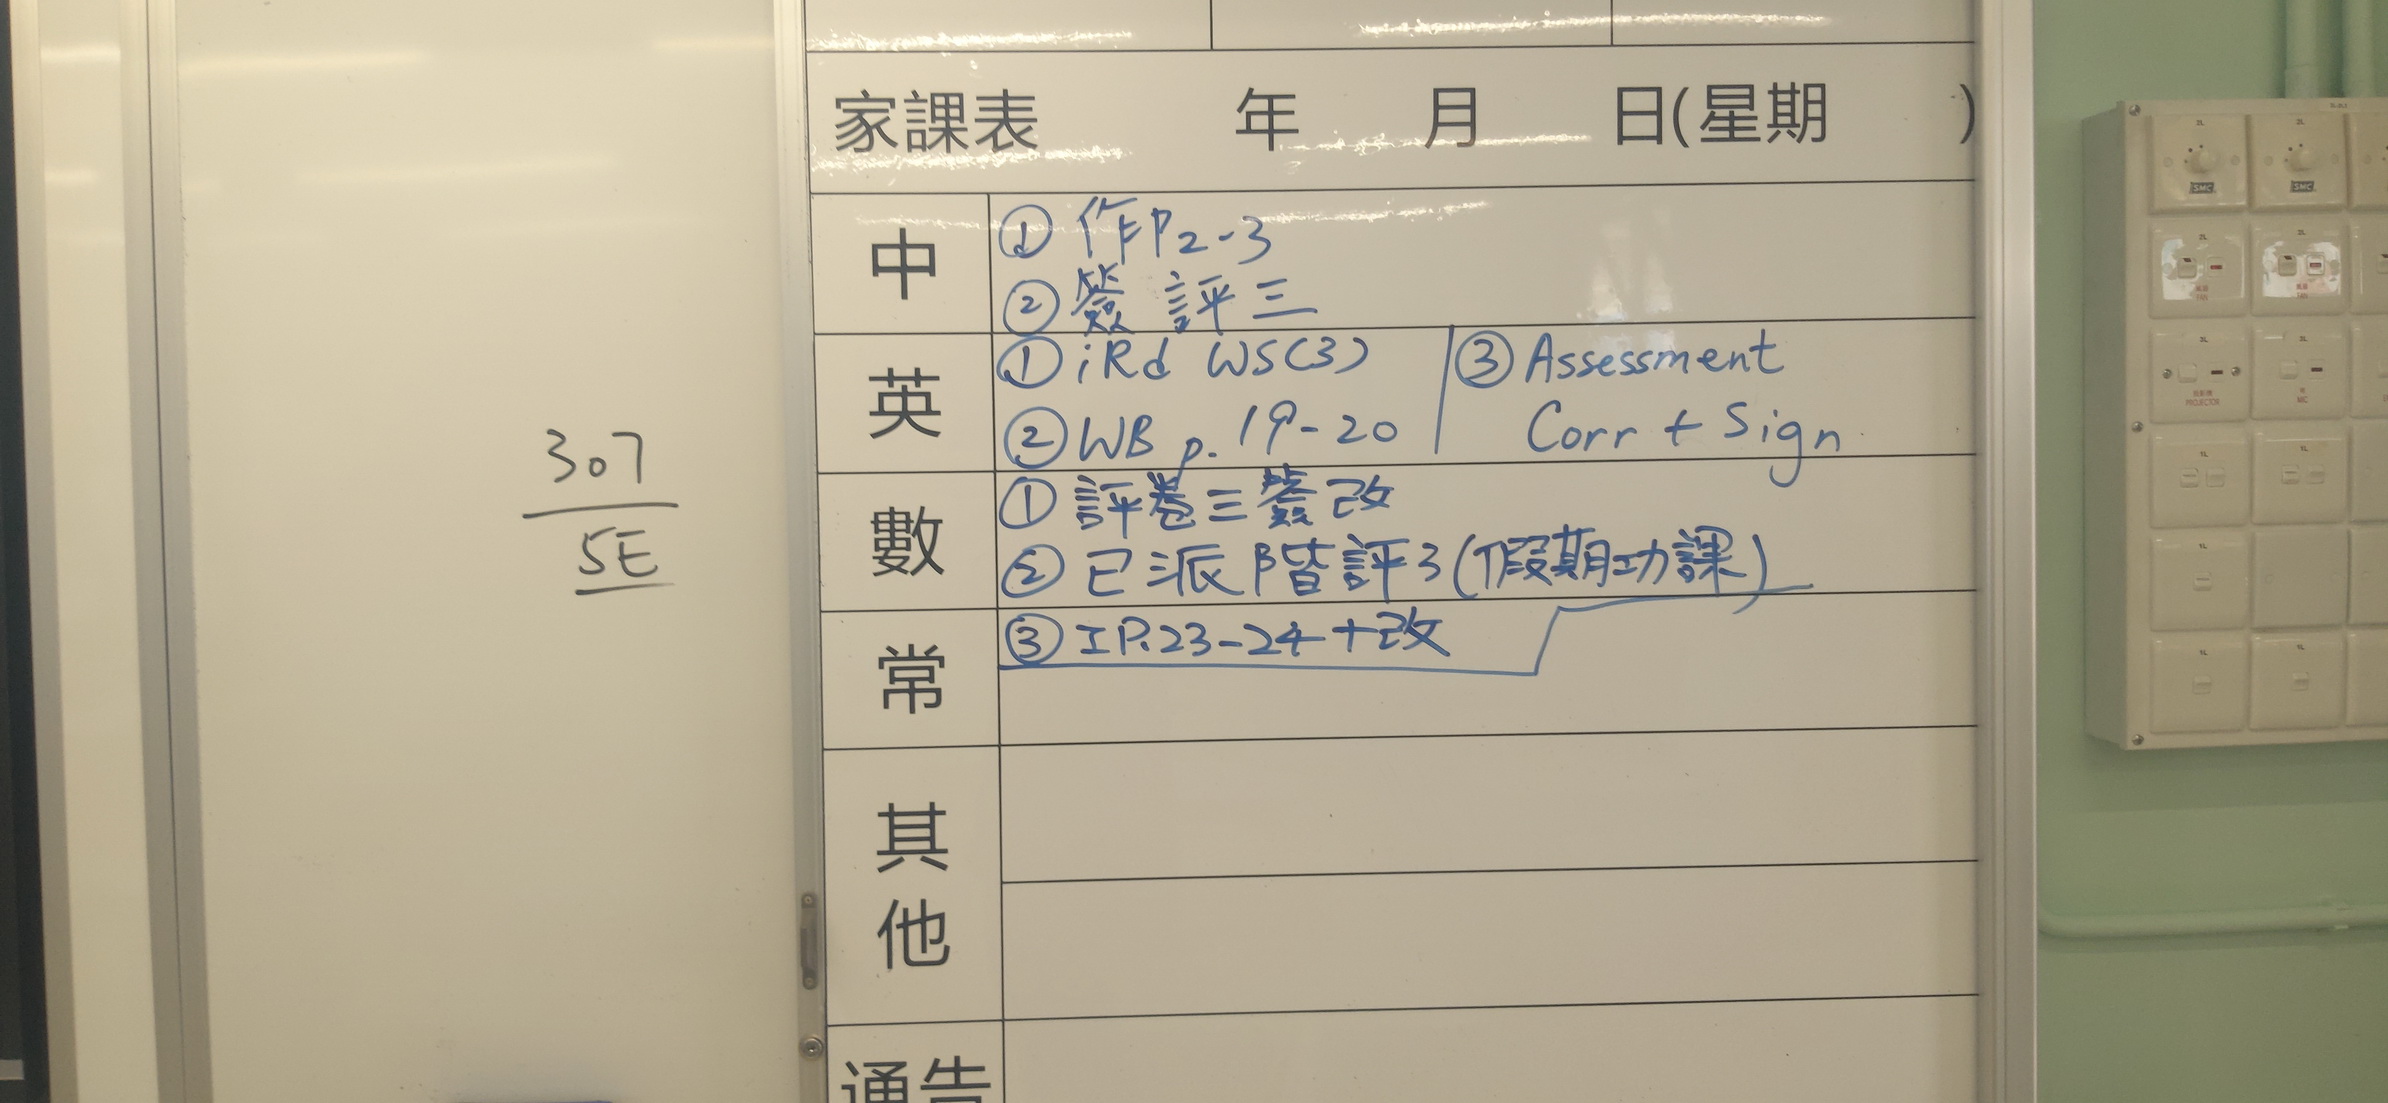 家課表 年 月 日(星期 )
中
① 作P2-3
② 簽 評三
英
① iRd WS(3)
② WB p. 19-20
③ Assessment
Corr + Sign
數
① 評卷三簽改
② 已派階評3(假期功課)
③ IP.23-24+改
常
其他
通告
307
5E
SMC
SMC
PROJECTOR
MIC